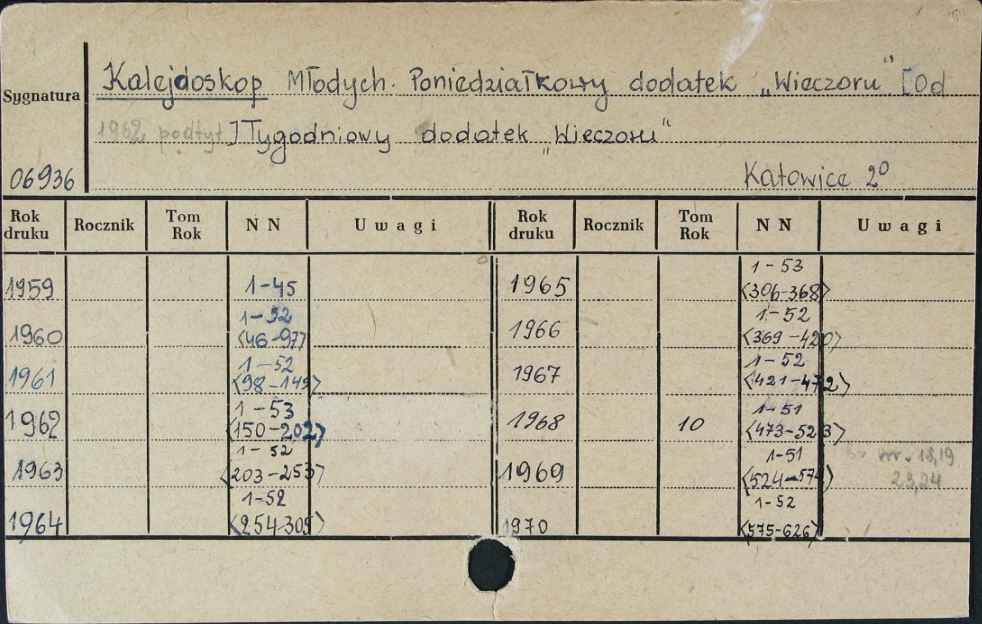 Kalejdoskop Młodych. Poniedziałkowy dodatek „Wieczoru" [Od
Sygnatura
1962 podtyt.] Tygodniowy dodatek „Wieczoru"
06936
Katowice 2º
Rok druku Rocznik Tom Rok NN Uwagi Rok druku Rocznik Tom Rok NN Uwagi
1959 1-45 1965 1-53 <306-368>
1960 1-52 <46-97> 1966 1-52 <369-420>
1961 1-52 <98-149> 1967 1-52 <421-472>
1962 1-53 <150-202> 1968 10 1-51 <473-523>
1963 1-52 <203-253> 1969 1-51 <524-574> nr. 18,19 23,24
1964 1-52 <254-305> 1970 1-52 <575-626>